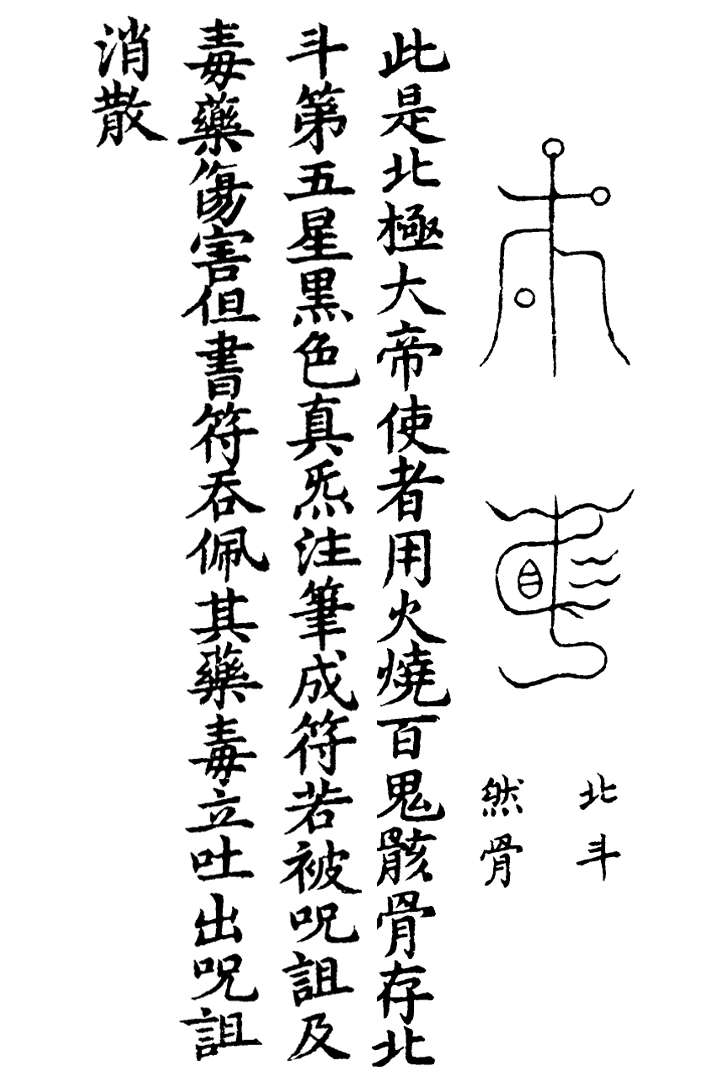 北斗
然骨
此是北極大帝使者用火燒百鬼骸骨存北
斗第五星黒色真炁注筆成符若被呪詛及
毒藥傷害但書符吞佩其藥毒立吐出呪詛
消散